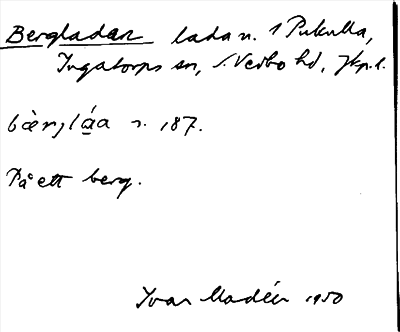 Bergladan lada n. 1 Pukulla,
Ingatorps sn, S. Vedbo hd, Jkp. l.
bàrjláa n. 187.
På ett berg.
Ivar Modéer 1950